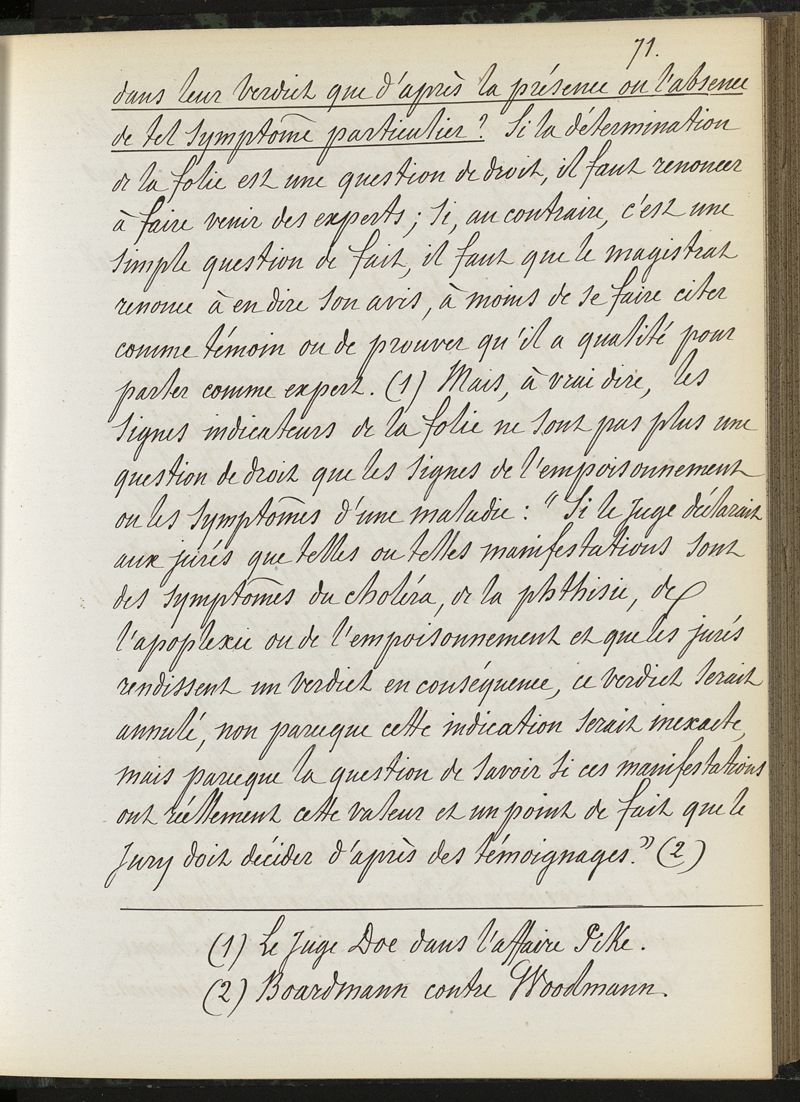 71.
dans leur verdict que d'après la présence ou l'absence
de tel symptôme particulier? Si la détermination
de la folie est une question de droit, il faut renoncer
à faire venir des experts; si, au contraire, c'est une
simple question de fait, il faut que le magistrat
renonce à en dire son avis, à moins de se faire citer
comme témoin ou de prouver qu'il a qualité pour
parler comme expert. (1) Mais, à vrai dire, les
signes indicateurs de la folie ne sont pas plus une
question de droit que les signes de l'empoisonnement
ou les symptômes d'une maladie: "Si le Juge déclarait
aux jurés que telles ou telles manifestations sont
des symptômes du choléra, de la phthisie, de
l'apoplexie ou de l'empoisonnement et que les jurés
rendissent un verdict en conséquence, ce verdict serait
annulé, non parceque cette indication serait inexacte,
mais parceque la question de savoir si ces manifestations
ont réellement cette valeur et un point de fait que le
Jury doit décider d'après des témoignages." (2)
(1) Le Juge Doe dans l'affaire Pike.
(2) Boardmann contre Woodmann.